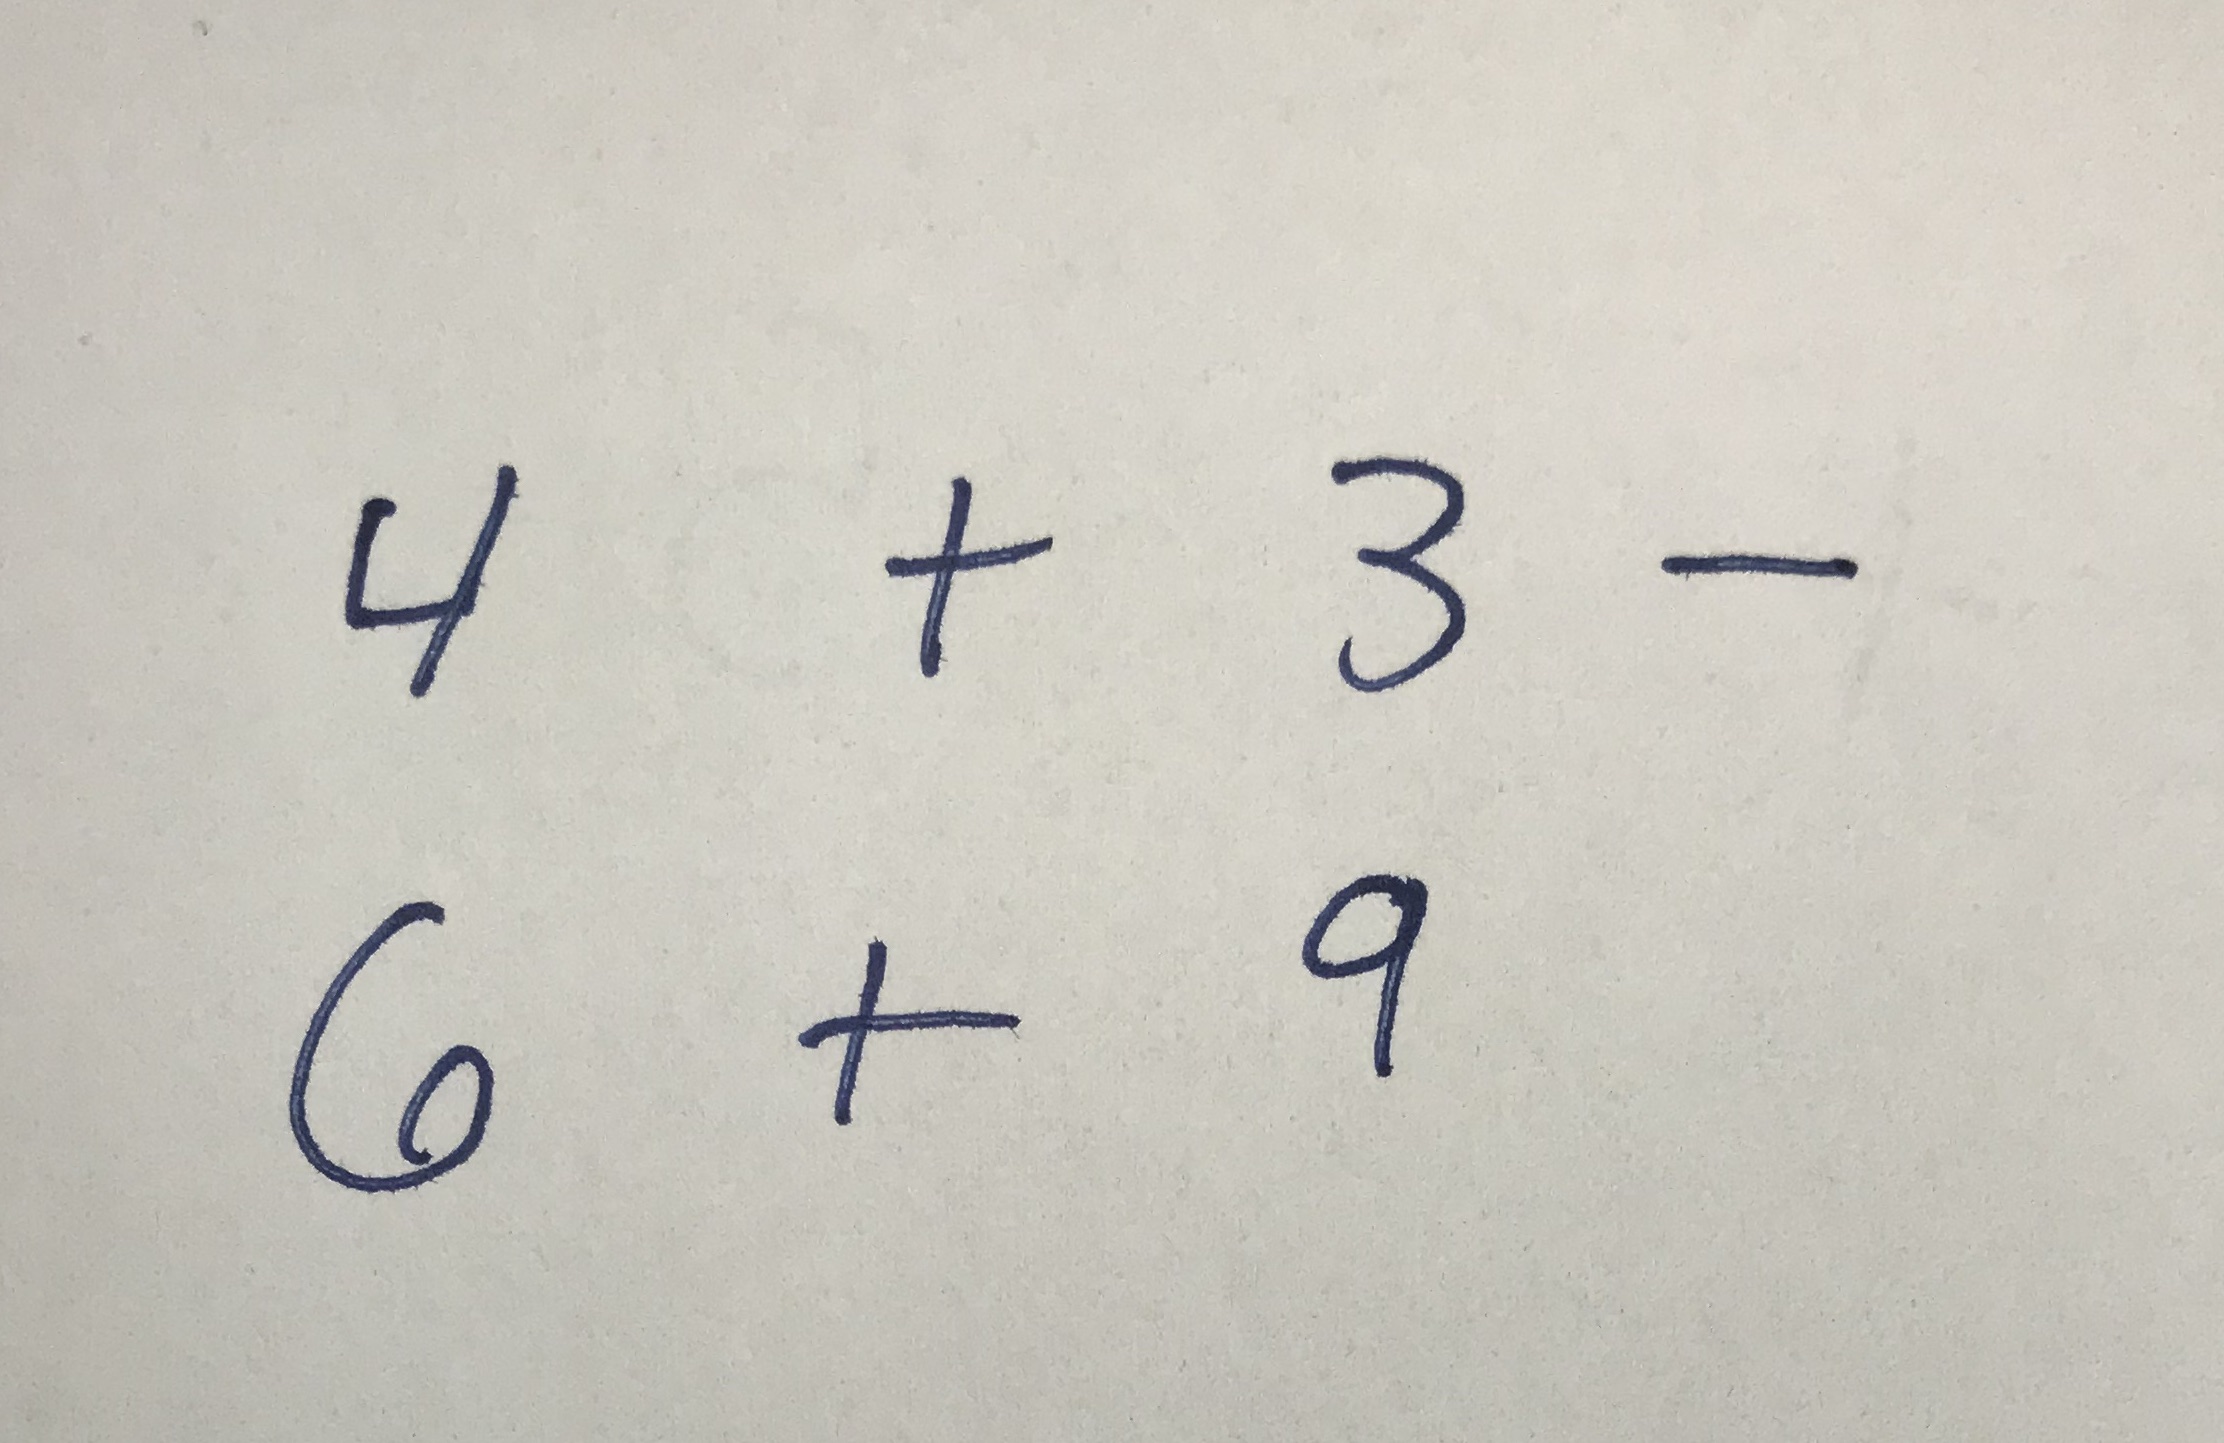 4 + 3 -
6 + 9